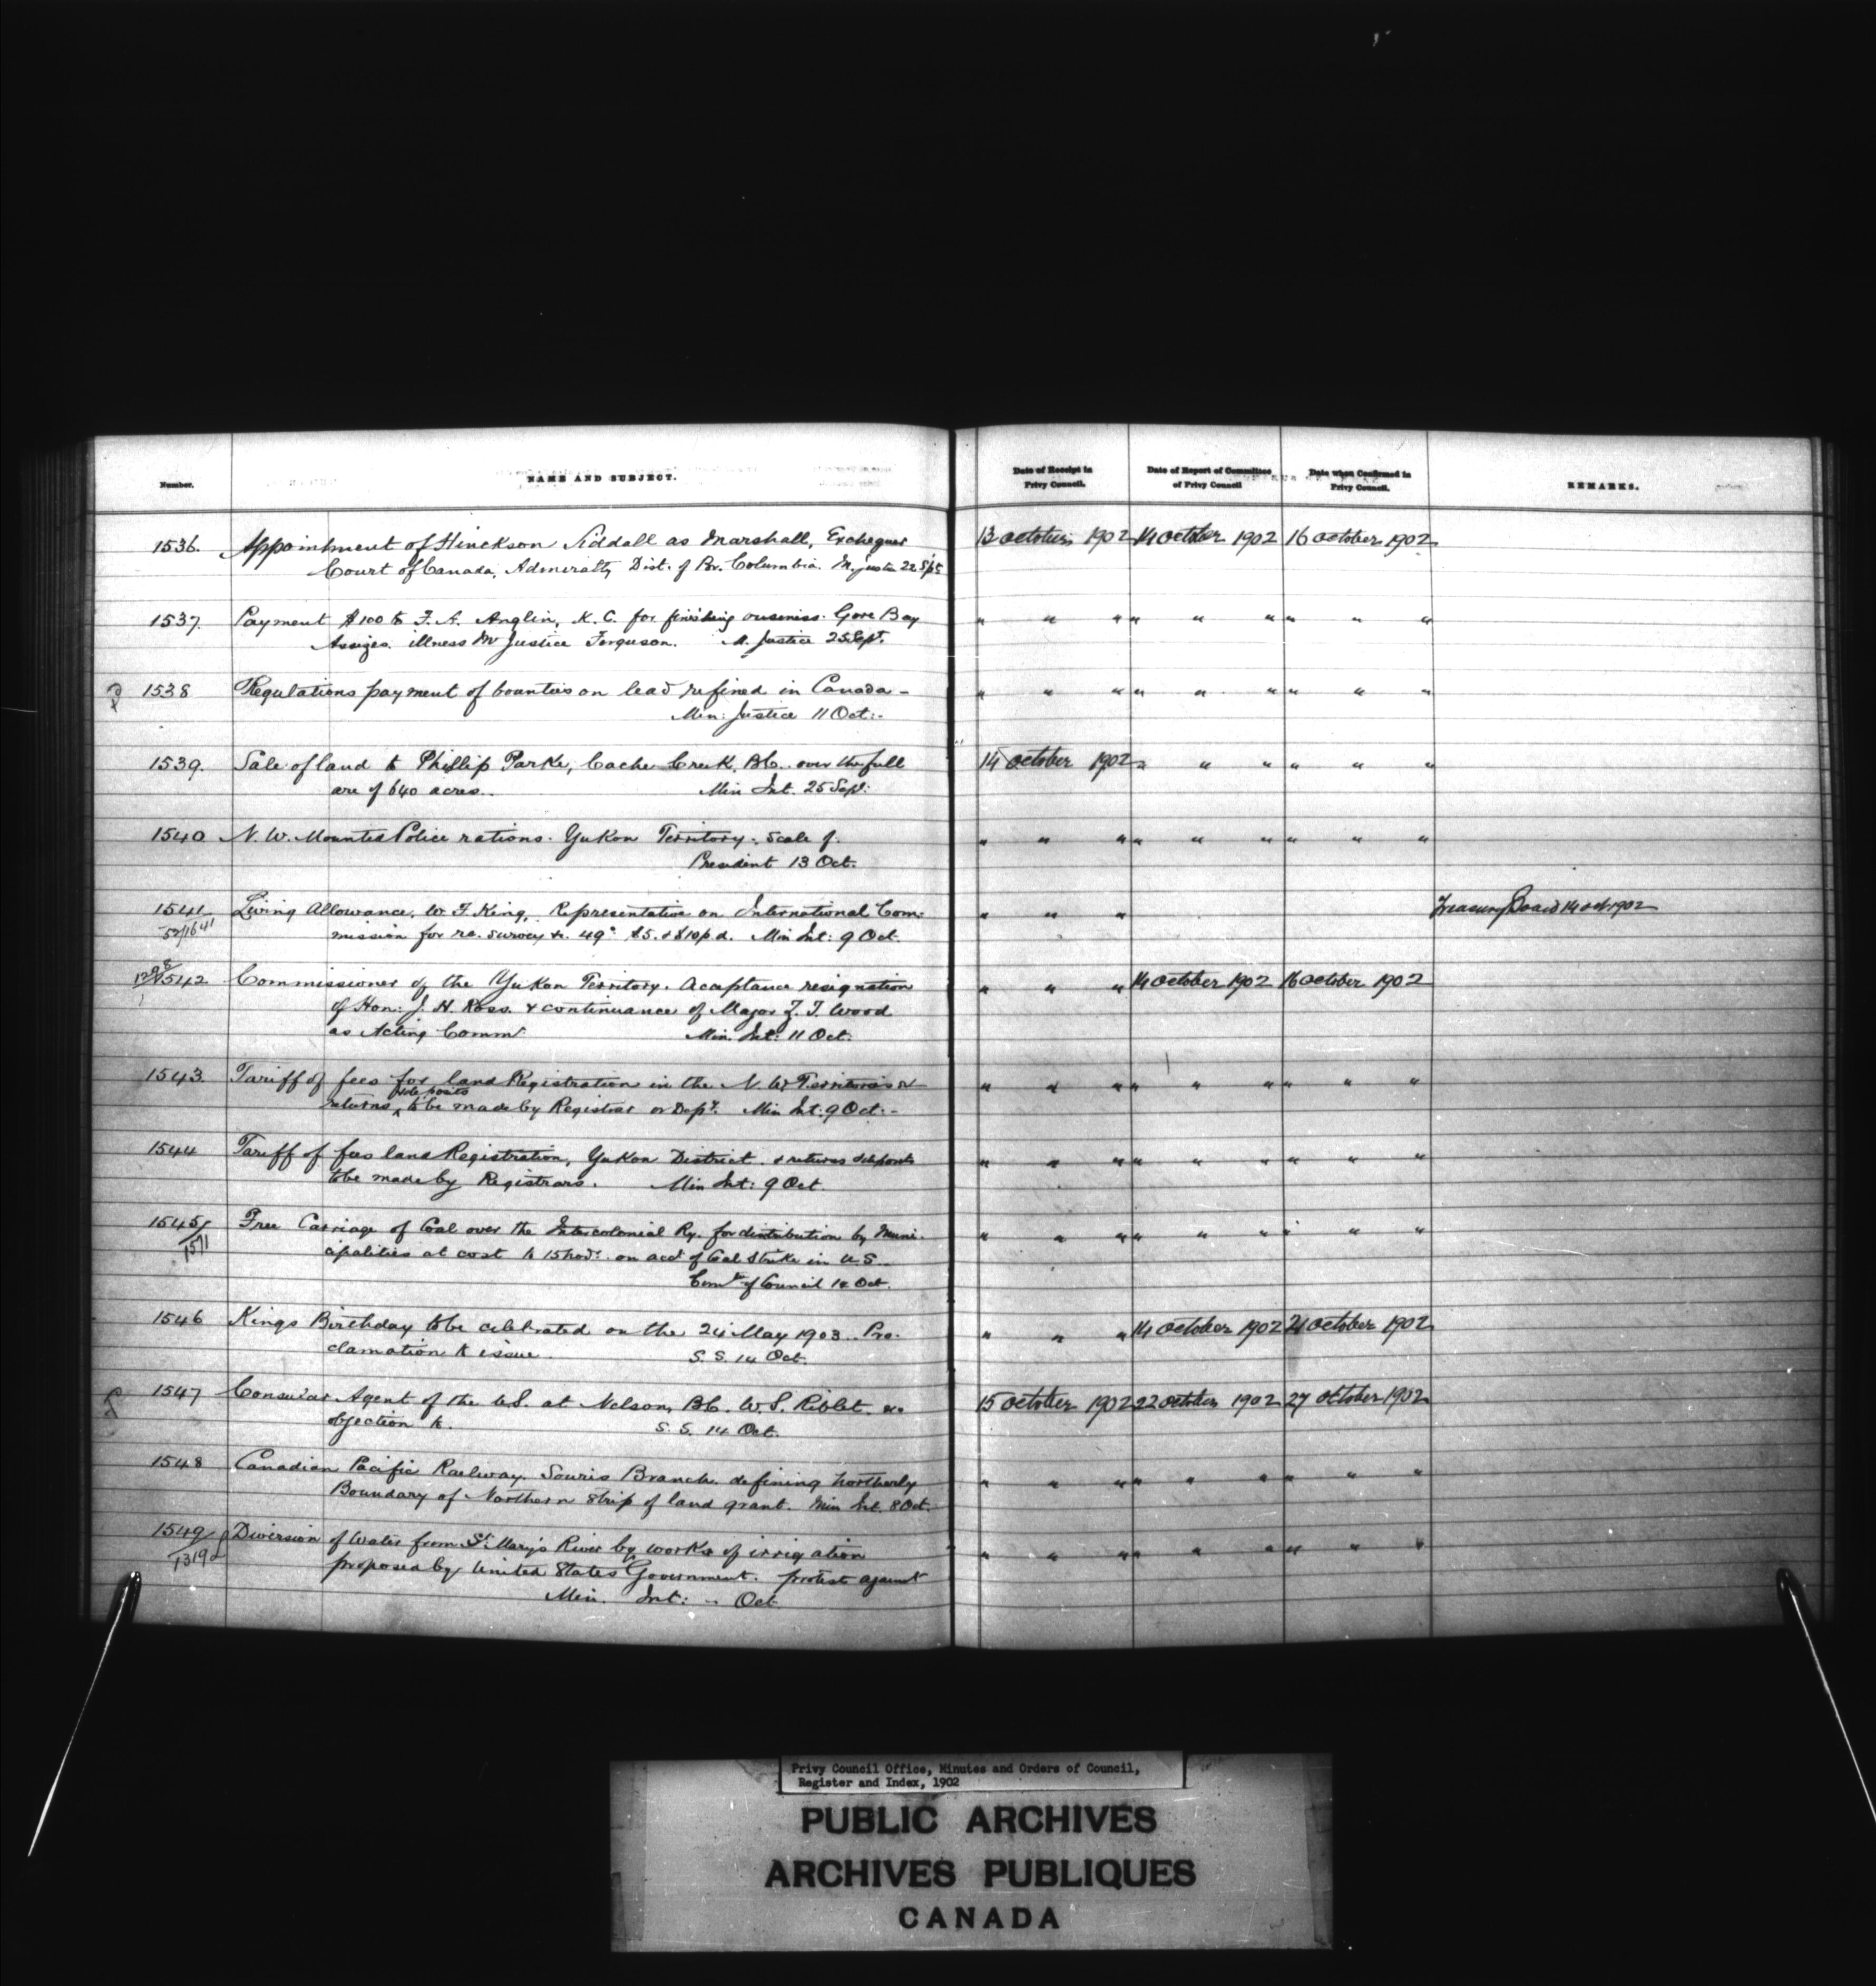 Number.
NAME AND SUBJECT.
Date of Receipt in Privy Council.
Date of Report of Committee of Privy Council
Date when Confirmed in Privy Council.
REMARKS.
1536. Appointment of Hinckson Siddall as Marshall, Exchequer 13 October 1902 14 October 1902 16 October 1902
Court of Canada, Admiralty Dist. of Br. Columbia. M. Justice 22 Sept
1537. Payment $100 to F. A. Anglin, K. C. for finishing business. Gore Bay " " " " " " " " "
Assizes. illness Mr Justice Ferguson. M. Justice 25 Sept.
1538 Regulations payment of bounties on lead refined in Canada - " " " " " " " " "
Min: Justice 11 Oct:-
1539. Sale of land to Phillip Parke, Cache Creek, B.C. over the full 14 October 1902 " " " " " "
are of 640 acres.. Min Int. 25 Sept:
1540 N. W. Mounted Police rations. Yukon Territory. Scale of. " " " " " " " " "
President 13 Oct.
1541 Living Allowance, W. F. King, Representative on International Com: " " " Treasury Board 14 Oct 1902
52/1641 mission for re. survey &c. 49° $5. & $10 p d. Min Int: 9 Oct.
1542 Commissioner of the Yukon Territory. Acceptance resignation " " " 14 October 1902 16 October 1902
of Hon: J. H. Ross. & continuance of Major Z. T. Wood
as Acting Commr. Min. Int: 11 Oct:
1543. Tariff of fees for land Registration in the N. W. Territories & " " " " " " " " "
& deposits
returns to be made by Registrar or Dept. Min Int: 9 Oct:-
1544 Tariff of fees land Registration, Yukon District. & returns & deposits " " " " " " " " "
to be made by Registrars. Min Int: 9 Oct.
1545/ Free Carriage of Coal over the Intercolonial Ry. for distribution by Muni- " " " " " " " " "
1571 cipalities at cost to 15 Novr. on acct of Coal Strike in U.S.
Comtee of Council 14 Oct.
1546 Kings Birthday to be celebrated on the 24 May 1903. Pro- " " " 14 October 1902 21 October 1902
clamation to issue. S. S. 14 Oct.
1547 Consular Agent of the U.S. at Nelson, B.C. W. S. Riblet. no 15 October 1902 22 October 1902 27 October 1902
objection to. S. S. 14 Oct.
1548 Canadian Pacific Railway. Souris Branch. defining northerly " " " " " " " " "
Boundary of Northern Strip of land grant. Min Int. 8 Oct.
1549/ Diversion of Water from St. Marys River by works of irrigation " " " " " " " " "
1319 proposed by United States Government. protest against
Min. Int: - Oct.
Privy Council Office, Minutes and Orders of Council,
Register and Index, 1902
PUBLIC ARCHIVES
ARCHIVES PUBLIQUES
CANADA